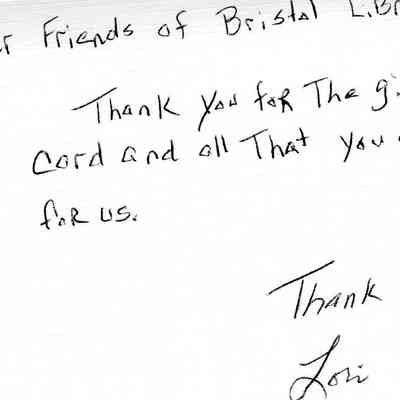 r Friends of Bristol Libr
Thank you for The gi
Card and all That you
for us.
Thank
Lori